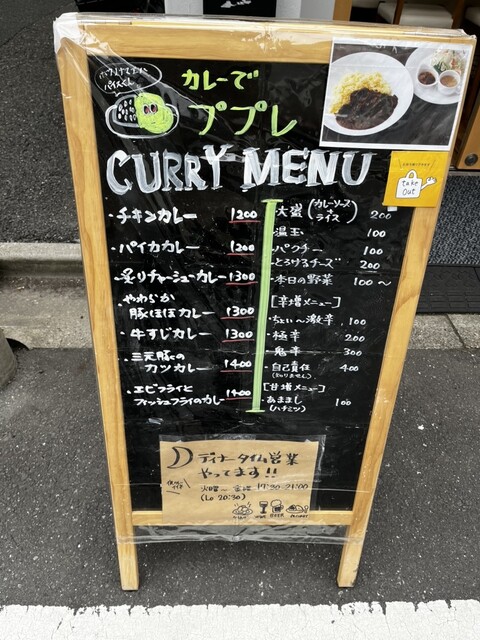 パイスくん
カレーで
ププレ
CURRY MENU
take
out
・チキンカレー 1200
・パイカカレー 1200
・炙りチャーシューカレー 1300
・やわらか
豚ほほカレー 1300
・牛すじカレー 1300
・三元豚の
カツカレー 1400
・エビフライと
フィッシュフライのカレー 1400
・大盛(カレーソース&ライス) 200
・温玉 100
・パクチー 100
・とろけるチーズ 200
・本日の野菜 100〜
[辛増メニュー]
・ちょい〜激辛 100
・極辛 200
・鬼辛 300
・自己責任 400
[甘増メニュー]
・あままし 100
(ハチミツ)
ディナータイム営業
やってます!!
火曜〜金曜 17:30-21:00
(Lo 20:30)